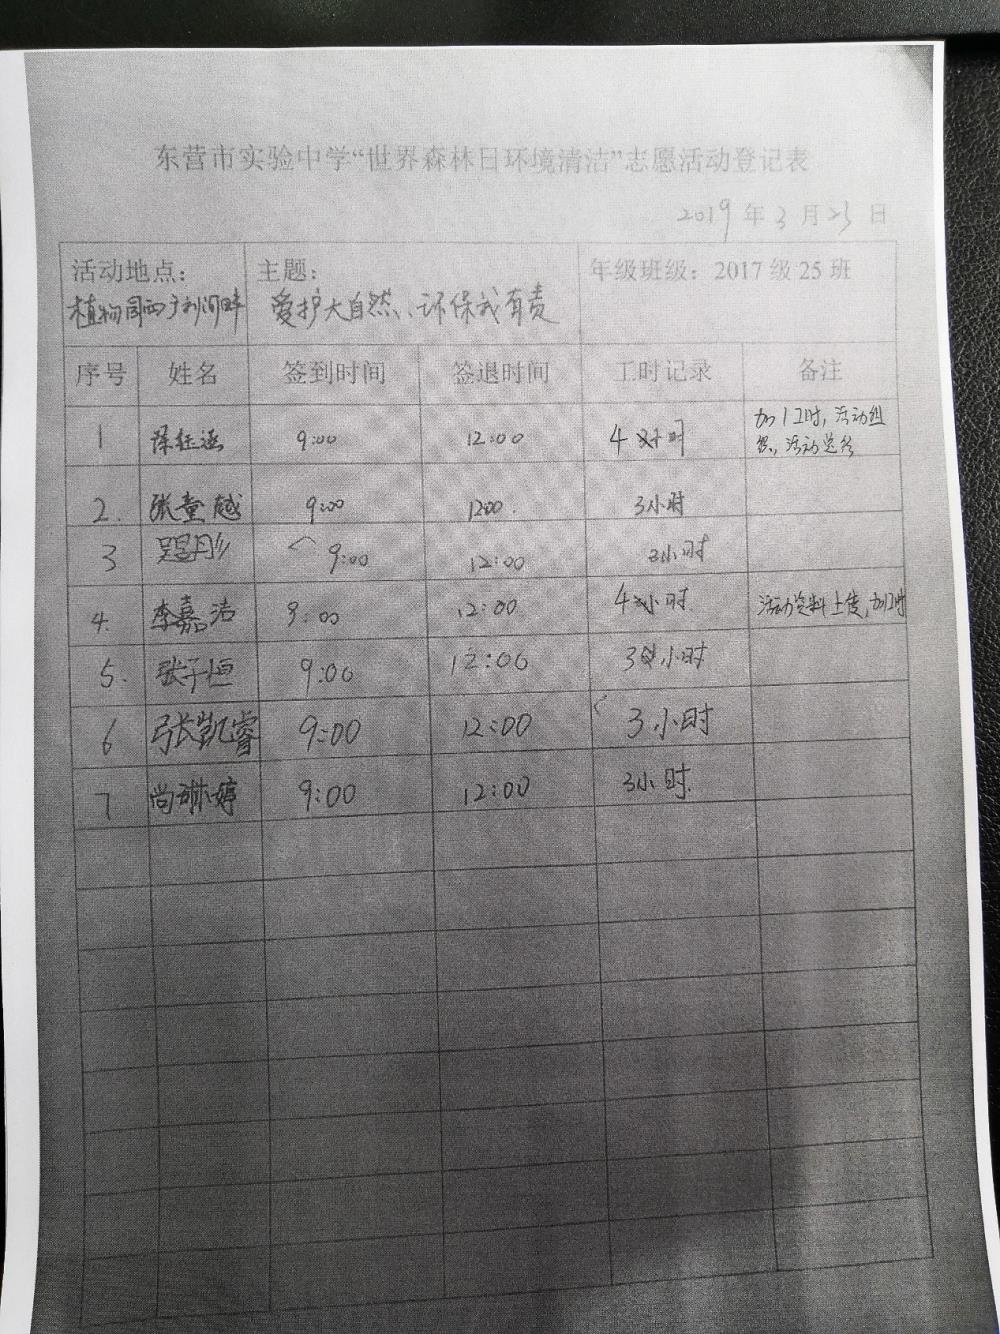 东营市实验中学“世界森林日环境清洁”志愿活动登记表
2019年3月23日
活动地点： 主题： 年级班级：2017级25班
植物园西广利河畔 爱护大自然、环保我有责
序号 姓名 签到时间 签退时间 工时记录 备注
1 9:00 12:00 4小时 加1工时，活动组
织，活动总
2. 张童越 9:00 12:00. 3小时
3 9:00 12:00 3小时
4. 李嘉洁 9:00 12:00 4小时 活动资料上传，加1工时
5. 张子恒 9:00 12:00 3小时
6 张凯睿 9:00 12:00 3小时
7 尚琳婷 9:00 12:00 3小时